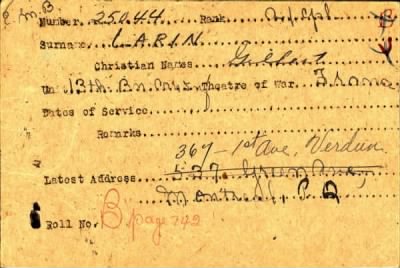 E.M.B
Number 25044 Rank A/Cpl
Surname LARIN
Christian Names
Un 13th Bn Theatre of War. France
Dates of Service
Remarks
367-1st Ave, Verdun
Latest Address 537
Montreal, P.Q.
Roll No. B page 742